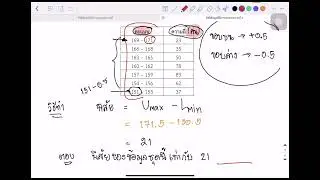 169 - 171 23
166 - 168 35
163 - 165 50
160 - 162 78
157 - 159 89
154 - 156 62
151 - 153 37
ขอบบน → +0.5
ขอบล่าง → -0.5
วิธีทำ พิสัย = Umax - Lmin
= 171.5 - 150.5
= 21
ตอบ พิสัยของข้อมูลชุดนี้ เท่ากับ 21